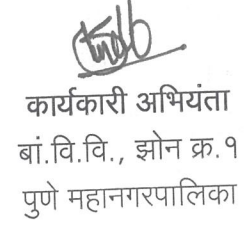 कार्यकारी अभियंता
बां.वि.वि., झोन क्र.१
पुणे महानगरपालिका